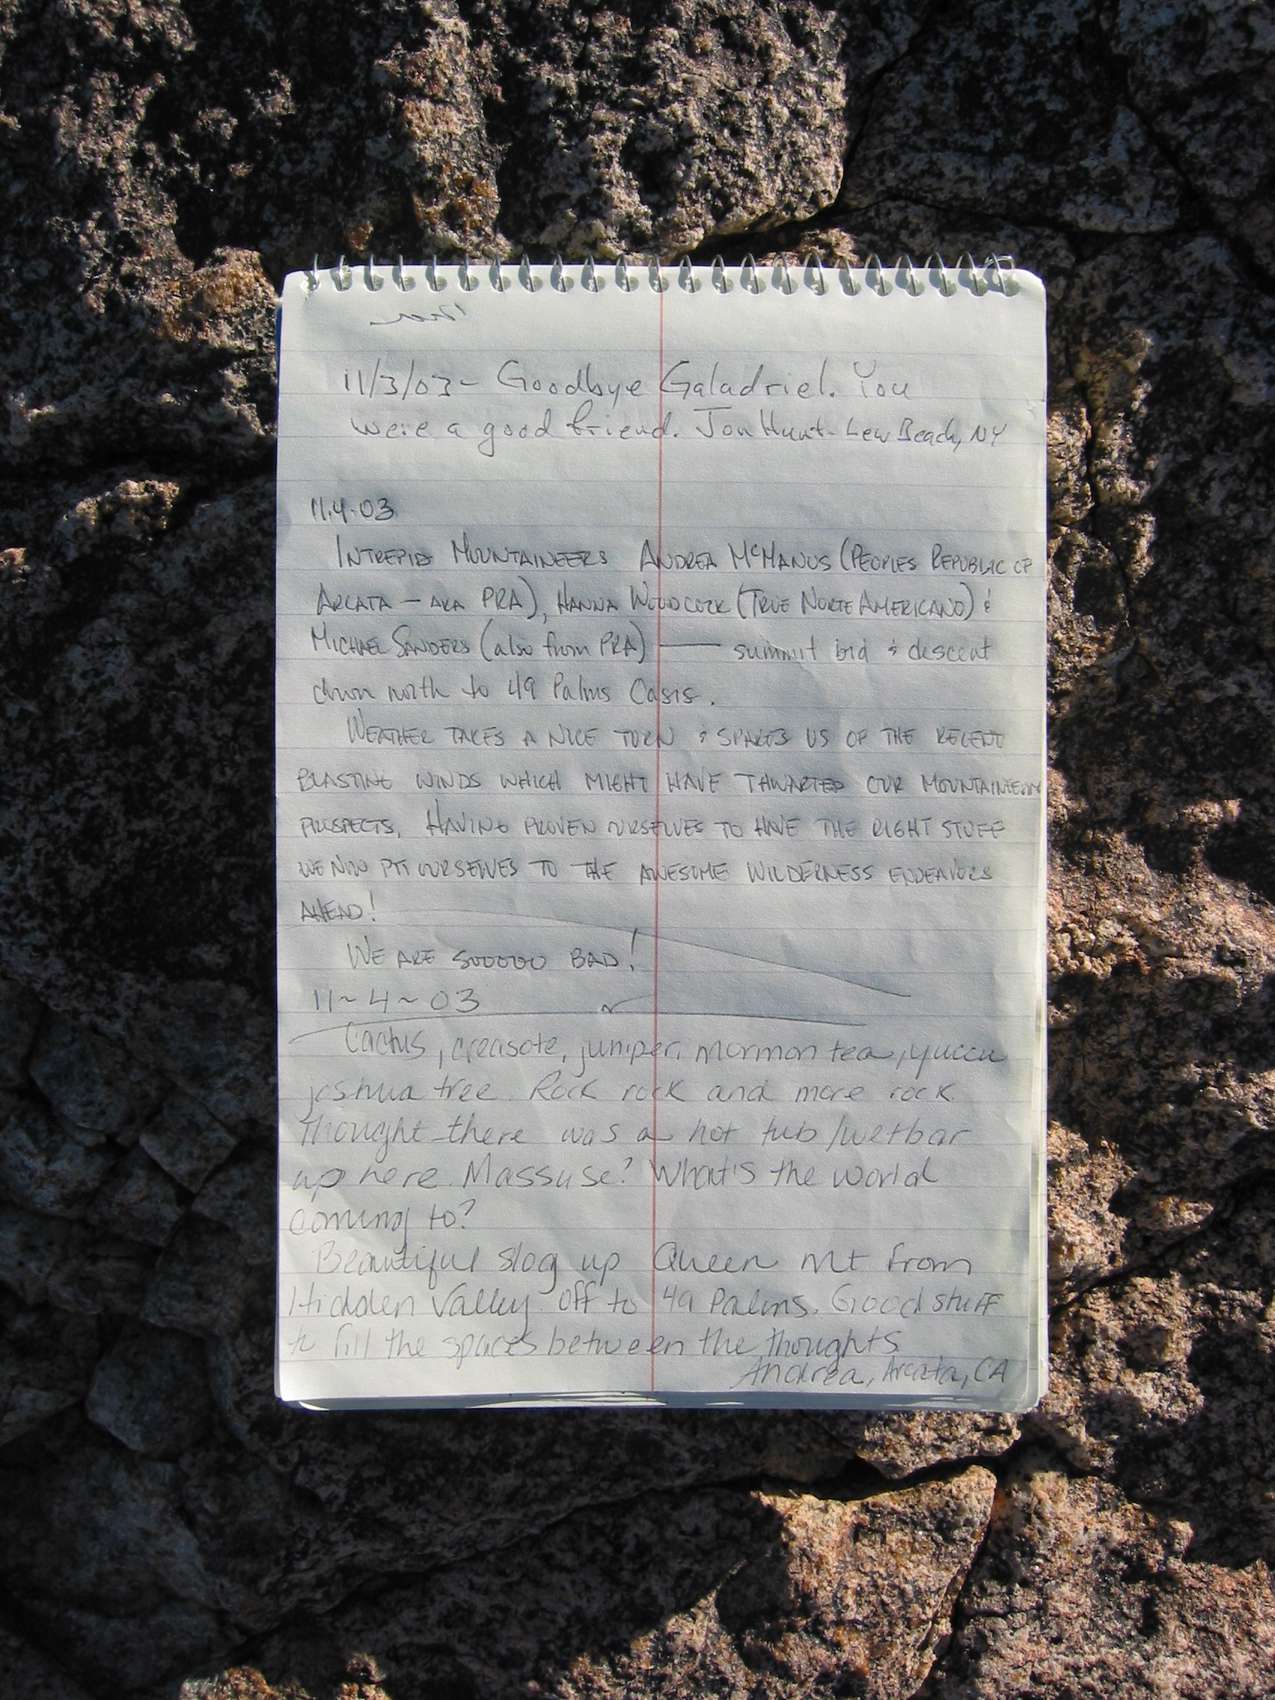 11/3/03 - Goodbye Galadriel. You
were a good friend. Jon Hunt - Lew Beach, NY
11.4.03
INTREPID MOUNTAINEERS ANDREA McMANUS (PEOPLES REPUBLIC OF
ARCATA - AKA PRA), HANNA WOODCOCK (TRUE NORTE AMERICANO) &
MICHAEL SANDERS (also from PRA) — summit bid & descent
down north to 49 Palms Oasis.
WEATHER TAKES A NICE TURN & SPARES US OF THE RECENT
BLASTING WINDS WHICH MIGHT HAVE THWARTED OUR MOUNTAINEERING
PROSPECTS. HAVING PROVEN OURSELVES TO HAVE THE RIGHT STUFF
WE NOW PIT OURSELVES TO THE AWESOME WILDERNESS ENDEAVORS
AHEAD!
WE ARE SOOOOO BAD!
11~4~03
Cactus, creasote, juniper, mormon tea, yucca
joshua tree. Rock rock and more rock.
Thought there was a hot tub/wetbar
up here. Massuse? What's the world
coming to?
Beautiful slog up Queen Mt from
Hidden Valley. off to 49 Palms. Good stuff
to fill the spaces between the thoughts
Andrea, Arcata, CA